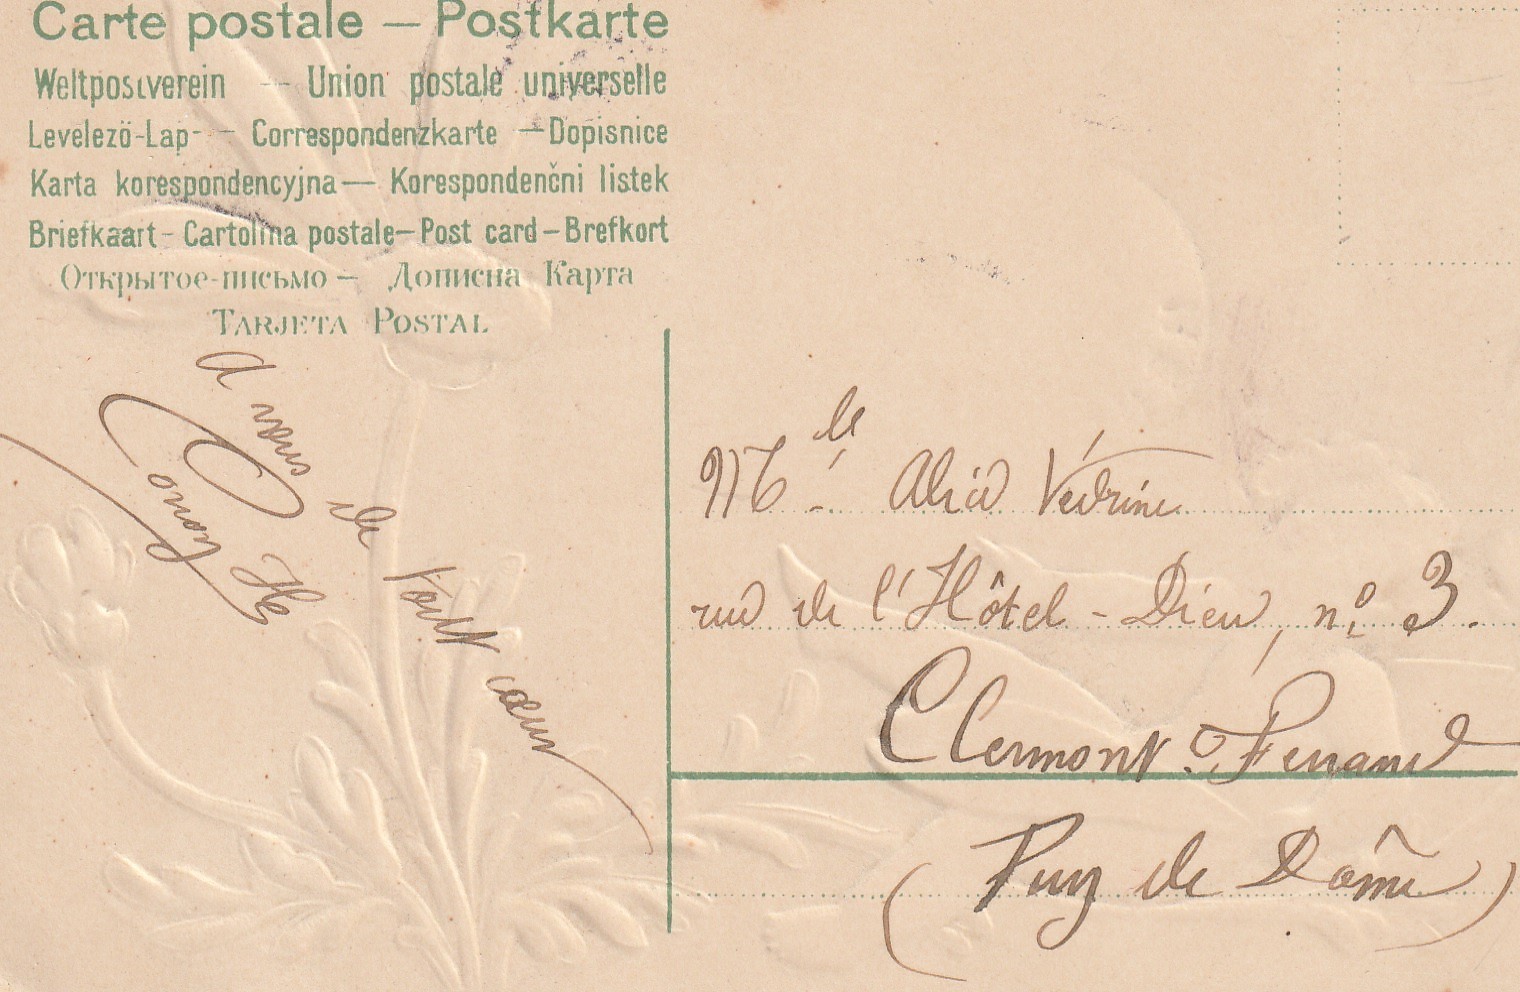 Carte postale — Postkarte
Weltpostverein — Union postale universelle
Levelezö-Lap- — Correspondenzkarte — Dopisnice
Karta korespondencyjna — Korespondenčni listek
Briefkaart - Cartolina postale - Post card - Brefkort
Открытое-письмо - Дописна Карта
Tarjeta Postal
A vous de tout cœur
Mlle Alice Védrine
rue de l'Hôtel-Dieu, no 3.
Clermont-Ferrand
(Puy de Dôme)